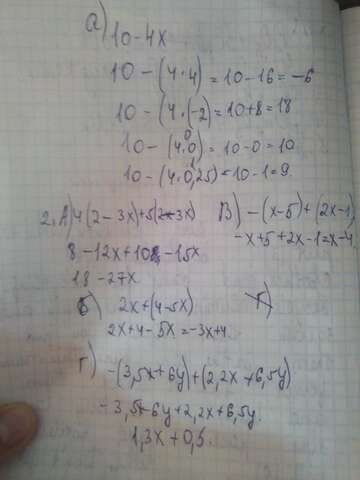 а) 10-4x
10 - (4·4) = 10-16 = -6
10 - (4·(-2) = 10+8 = 18
10 - (4·0) = 10-0 = 10
10 - (4·0,25) = 10-1 = 9.
2. А) 4(2-3x)+5(2-3x) В) -(x-5)+(2x-1)
8-12x+10-15x -x+5+2x-1=x-4
18-27x
Б) 2x+(4-5x)
2x+4-5x=-3x+4.
Г) -(3,5x+6y)+(2,2x+6,5y)
-3,5x-6y+2,2x+6,5y.
1,3x+0,5.